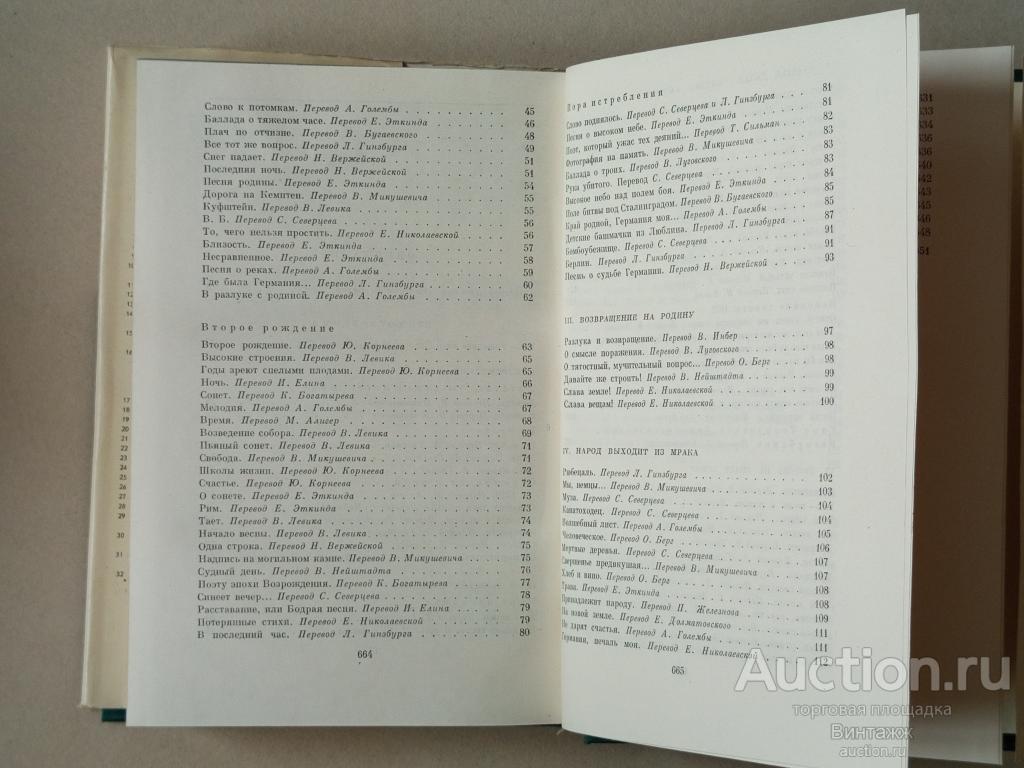 Слово к потомкам. Перевод А. Голембы . . . 45
Баллада о тяжелом часе. Перевод Е. Эткинда . . . 46
Плач по отчизне. Перевод В. Бугаевского . . . 48
Все тот же вопрос. Перевод Л. Гинзбурга . . . 49
Снег падает. Перевод Н. Вержейской . . . 51
Последняя ночь. Перевод Н. Вержейской . . . 51
Песня родины. Перевод Е. Эткинда . . . 54
Дорога на Кемптен. Перевод В. Микушевича . . . 55
Куфштейн. Перевод В. Левика . . . 55
В. Б. Перевод С. Северцева . . . 56
То, чего нельзя простить. Перевод Е. Николаевской . . . 56
Близость. Перевод Е. Эткинда . . . 57
Несравненное. Перевод Е. Эткинда . . . 58
Песня о реках. Перевод А. Голембы . . . 59
Где была Германия... Перевод Л. Гинзбурга . . . 60
В разлуке с родиной. Перевод А. Голембы . . . 62
Второе рождение
Второе рождение. Перевод Ю. Корнеева . . . 63
Высокие строения. Перевод В. Левика . . . 65
Годы зреют спелыми плодами. Перевод Ю. Корнеева . . . 65
Ночь. Перевод И. Елина . . . 66
Сонет. Перевод К. Богатырева . . . 67
Мелодия. Перевод А. Голембы . . . 67
Время. Перевод М. Алигер . . . 68
Возведение собора. Перевод В. Левика . . . 69
Пьяный сонет. Перевод В. Левика . . . 71
Свобода. Перевод В. Микушевича . . . 71
Школы жизни. Перевод Ю. Корнеева . . . 72
Счастье. Перевод Ю. Корнеева . . . 72
О сонете. Перевод Е. Эткинда . . . 73
Рим. Перевод Е. Эткинда . . . 73
Тает. Перевод В. Левика . . . 74
Начало весны. Перевод В. Левика . . . 74
Одна строка. Перевод Н. Вержейской . . . 75
Надпись на могильном камне. Перевод В. Микушевича . . . 75
Судный день. Перевод В. Нейштадта . . . 76
Поэту эпохи Возрождения. Перевод К. Богатырева . . . 77
Синеет вечер... Перевод С. Северцева . . . 78
Расставание, или Бодрая песня. Перевод И. Елина . . . 79
Потерянные стихи. Перевод Е. Николаевской . . . 79
В последний час. Перевод Л. Гинзбурга . . . 80
664
Пора истребления . . . 81
Слово поднялось. Перевод С. Северцева и Л. Гинзбурга . . . 81
Песня о высоком небе. Перевод Е. Эткинда . . . 82
Поэт, который ужас тех деяний... Перевод Т. Сильман . . . 83
Фотография на память. Перевод В. Микушевича . . . 83
Баллада о троих. Перевод В. Луговского . . . 83
Рука убитого. Перевод С. Северцева . . . 84
Высокое небо над полем боя. Перевод Е. Эткинда . . . 84
Поле битвы под Сталинградом. Перевод В. Бугаевского . . . 85
Край родной, Германия моя... Перевод А. Голембы . . . 87
Детские башмачки из Люблина. Перевод Л. Гинзбурга . . . 91
Бомбоубежище. Перевод С. Северцева . . . 91
Берлин. Перевод Л. Гинзбурга . . . 93
Песнь о судьбе Германии. Перевод Н. Вержейской
III. ВОЗВРАЩЕНИЕ НА РОДИНУ
Разлука и возвращение. Перевод В. Инбер . . . 97
О смысле поражения. Перевод В. Луговского . . . 98
О тягостный, мучительный вопрос... Перевод О. Берг . . . 98
Давайте же строить! Перевод В. Нейштадта . . . 99
Слава земле! Перевод Е. Николаевской . . . 99
Слава вещам! Перевод Е. Николаевской . . . 100
IV. НАРОД ВЫХОДИТ ИЗ МРАКА
Рюбецаль. Перевод Л. Гинзбурга . . . 102
Мы, немцы... Перевод В. Микушевича . . . 103
Муза. Перевод С. Северцева . . . 104
Канатоходец. Перевод С. Северцева . . . 104
Волшебный лист. Перевод А. Голембы . . . 105
Человеческое. Перевод О. Берг . . . 106
Мертвые деревья. Перевод С. Северцева . . . 107
Свершенье предвкушая... Перевод В. Микушевича . . . 107
Хлеб и вино. Перевод О. Берг . . . 108
Трава. Перевод Е. Эткинда . . . 108
Принадлежит народу. Перевод П. Железнова . . . 109
На новой земле. Перевод Е. Долматовского . . . 111
Не дарят счастья. Перевод А. Голембы . . . 111
Германия, печаль моя. Перевод Е. Николаевской . . . 112
665
Auction.ru
торговая площадка
Винтажх
auction.ru